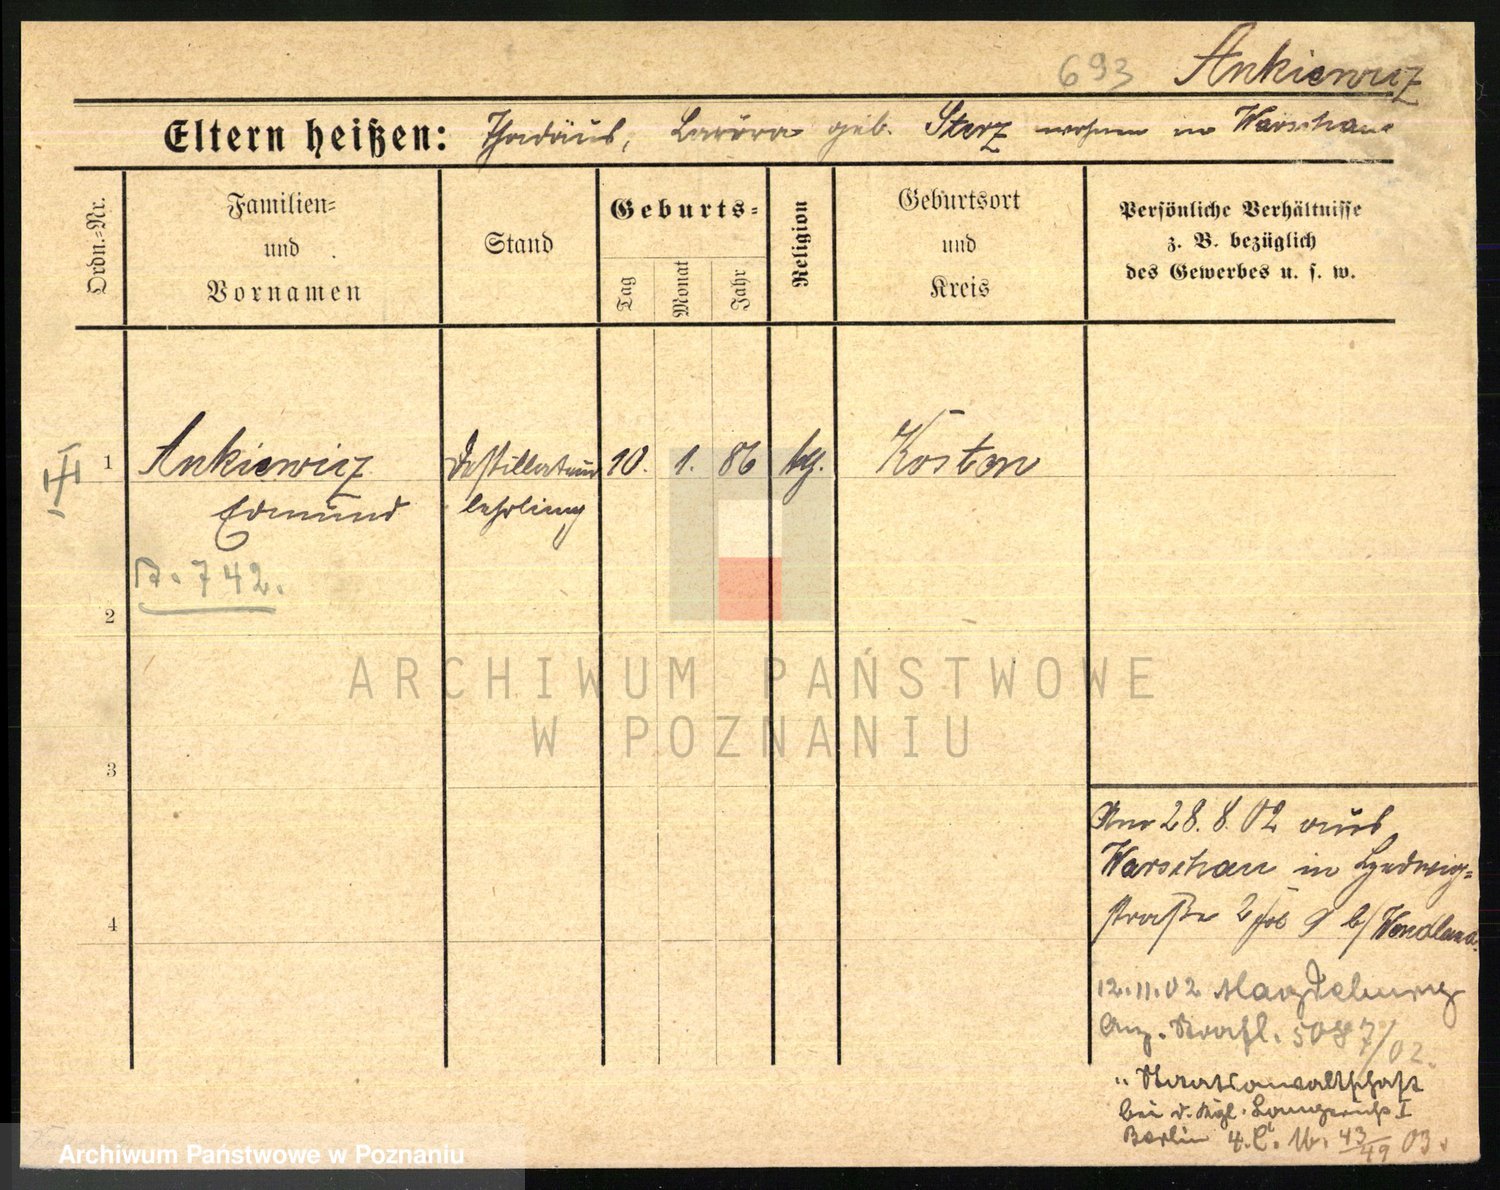 693 Ankiewicz
Eltern heißen: Thadäus, Laura geb. Sterz wohnen in Warschau
Ordn.-Nr.
Familien-
und
Vornamen
Stand
Geburts-
Tag
Monat
Jahr
Religion
Geburtsort
und
Kreis
Persönliche Verhältnisse
z. B. bezüglich
des Gewerbes u. s. w.
III
1 Ankiewicz Destillateur 10. 1. 86 kt. Kosten
Edmund lehrling
A. 742.
2
3
4
ARCHIWUM PAŃSTWOWE
W POZNANIU
Am 28. 8. 02 aus
Warschau in Hedwig-
straße 2 b/ Wendland.
12.11.02 Magdeburg
Anz. Strafl. 5087/02.
" Staatsanwaltschaft
bei d. Kgl. Landgericht I
Berlin 4. C. 43/49 03.
Archiwum Państwowe w Poznaniu